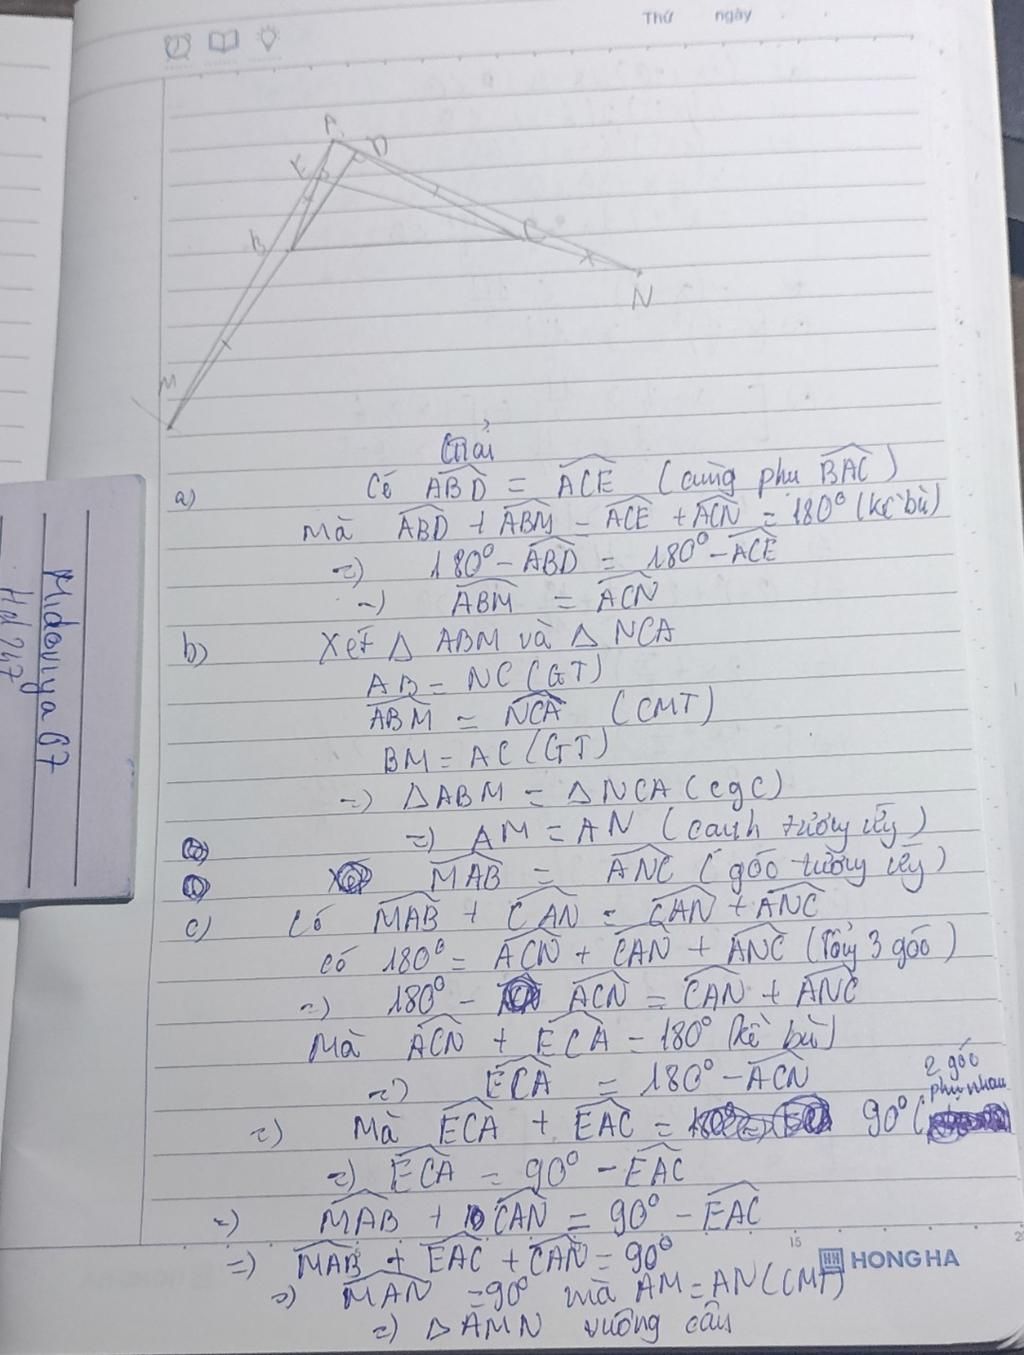 Thứ ngày
A
E D
B C
N
M
Giải
a) Có ABD = ACE (cùng phụ BAC)
Mà ABD + ABM = ACE + ACN = 180° (kề bù)
=) 180° - ABD = 180° - ACE
=) ABM = ACN
b) Xét Δ ABM và Δ NCA
AB = NC (GT)
ABM = NCA (CMT)
BM = AC (GT)
=) ΔABM = ΔNCA (cgc)
=) AM = AN (cạnh tương ứng)
MAB = ANC (góc tương ứng)
c) Có MAB + CAN = CAN + ANC
Có 180° = ACN + CAN + ANC (Tổng 3 góc)
=) 180° - ACN = CAN + ANC
Mà ACN + ECA = 180° (kề bù)
=) ECA = 180° - ACN
2 góc
phụ nhau
=) Mà ECA + EAC = 90° (
=) ECA = 90° - EAC
=) MAB + CAN = 90° - EAC
=) MAB + EAC + CAN = 90°
=) MAN = 90° mà AM = AN (CMT)
=) Δ AMN vuông cân
15
HH HONG HA
Midoviya 67
Hd 247